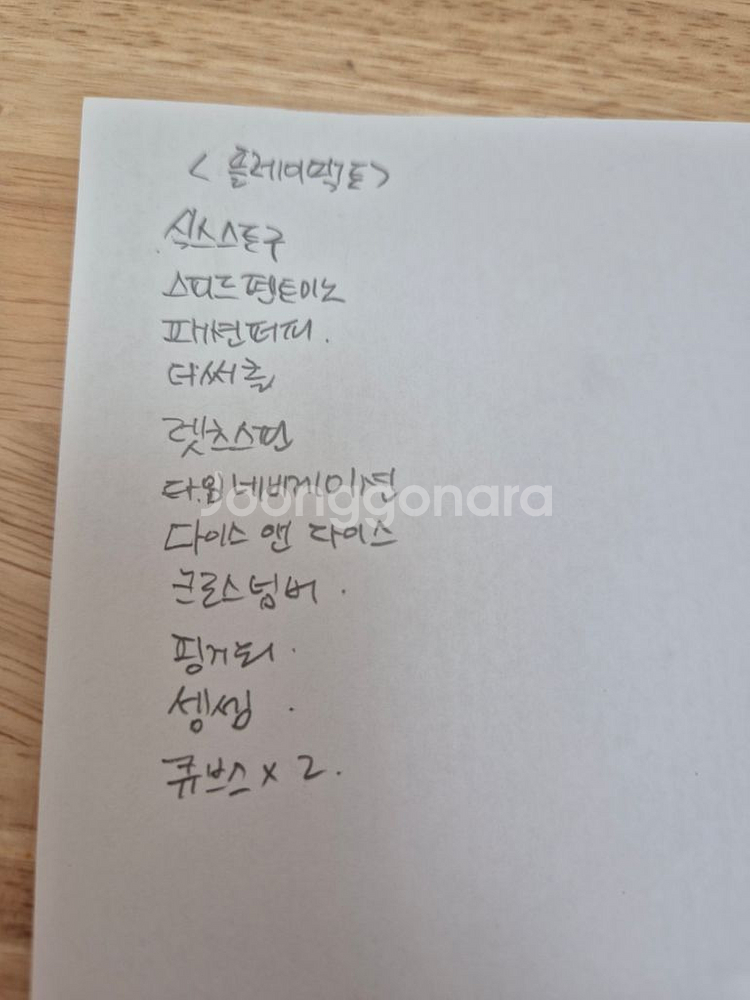 <플레이팩토>
식스스토구
스피드 펜토미노
패션퍼피.
더써클
렛츠스핀
타임네비게이션
다이스 앤 다이스
크로스넘버.
핑거퇴.
셈셈.
큐브스 x 2.
Joonggonara